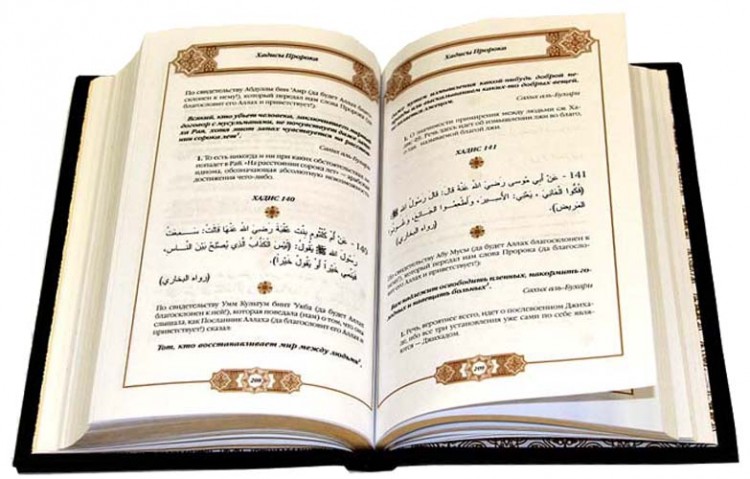 Хадисы Пророка
По свидетельству Абдуллы бин 'Амр (да будет Аллах благо-
склонен к нему!), который передал нам слова Пророка (да
благословит его Аллах и приветствует!):
Всякий, кто убьет человека, заключившего мирный
договор с мусульманами, не почувствует даже запа-
ха Рая, хотя этот запах чувствуется на расстоя-
нии сорока лет¹.
Сахих аль-Бухари
1. То есть никогда и ни при каких обстоятельствах не
попадет в Рай. «На расстоянии сорока лет» — арабская
идиома, обозначающая абсолютную невозможность
достижения чего-либо.
ХАДИС 140
140 - عَنْ أُمِّ كُلْثُومٍ بِنْتِ عُقْبَةَ رَضِيَ اللهُ عَنْهَا قَالَتْ: سَمِعْتُ
رَسُولَ اللهِ ﷺ يَقُولُ: (لَيْسَ الْكَذَّابُ الَّذِي يُصْلِحُ بَيْنَ النَّاسِ،
فَيَنْمِي خَيْرًا أَوْ يَقُولُ خَيْرًا).
(رواه البخاري)
По свидетельству Умм Кульгум бинт 'Укба (да будет Аллах
благосклонен к ней!), которая поведала (нам) о том, что она
слышала, как Посланник Аллаха (да благословит его Аллах и
приветствует!) сказал:
Тот, кто восстанавливает мир между людьми¹,
208
Хадисы Пророка
путем измышления какой-нибудь доброй не-
или высказыванием каких-то добрых вещей,
не является лжецом.
Сахих аль-Бухари
1. О значимости примирения между людьми см. Ха-
дис. Речь здесь идет об измышлении лжи во благо,
так называемой благой лжи.
ХАДИС 141
141 - عَنْ أَبِي مُوسَى رَضِيَ اللهُ عَنْهُ قَالَ: قَالَ رَسُولُ اللهِ ﷺ
(فُكُّوا الْعَانِيَ، يَعْنِي: الأَسِيرَ، وَأَطْعِمُوا الْجَائِعَ، وَعُودُوا
الْمَرِيضَ).
(رواه البخاري)
По свидетельству Абу Мусы (да будет Аллах благосклонен к
нему!), который передал нам слова Пророка (да благосло-
вит его Аллах и приветствует!):
Вам надлежит освободить пленных, накормить го-
лодных и навещать больных¹.
Сахих аль-Бухари
1. Речь, вероятнее всего, идет о послевоенном Джиха-
де, ибо все три установления уже сами по себе явля-
ются — Джихадом.
209